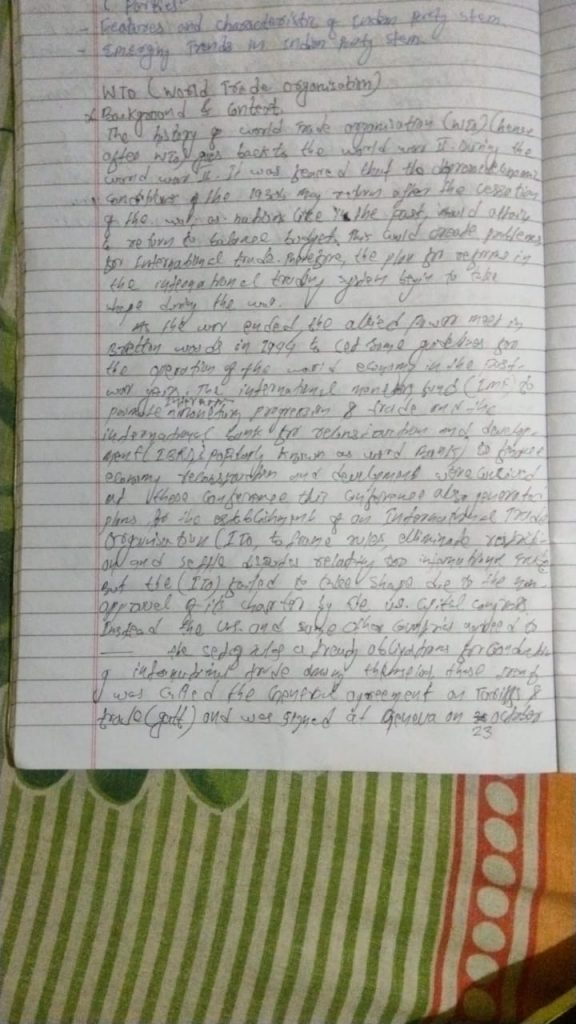 ( Parties
- Features and characteristic of Indian Party stem
- Emerging Trends in Indian Party stem
WTO (World Trade organisation)
Background & Context
The history of world Trade organisation (WTO) (hence
after WTO) goes back to the world war II. During the
world war II. It was feared that the
conditions of the 1930s may return after the cessation
of the war, as nations like in the past, would
to return to balance budget, this could create problems
for International trade. Therefore, the plan for reforms in
the international trading system begin to take
shape during the war.
As the war ended, the allied Power meet in
Bretton woods in 1944 to some guidelines for
the operation of the world economy in the Post-
war years. The international monetary fund (IMF) to
promote monetary & trade and the
international bank for and develop-
ment (IBRD) Popularly known as word Bank) to finance
economy and development were
at these conference this conference also generated
plans for the establishment of an International Trade
Organisation (ITO, to frame rules, eliminate restrict-
on and settle relating to international trade
But the (ITO) failed to take shape due to the non
approval of its charter by the U.S.
Instead the U.S. and some other countries agreed to
the obligations for
of international trade among these treaty
was called the General agreement on Tariffs &
trade (gatt) and was signed at Geneva on october
23